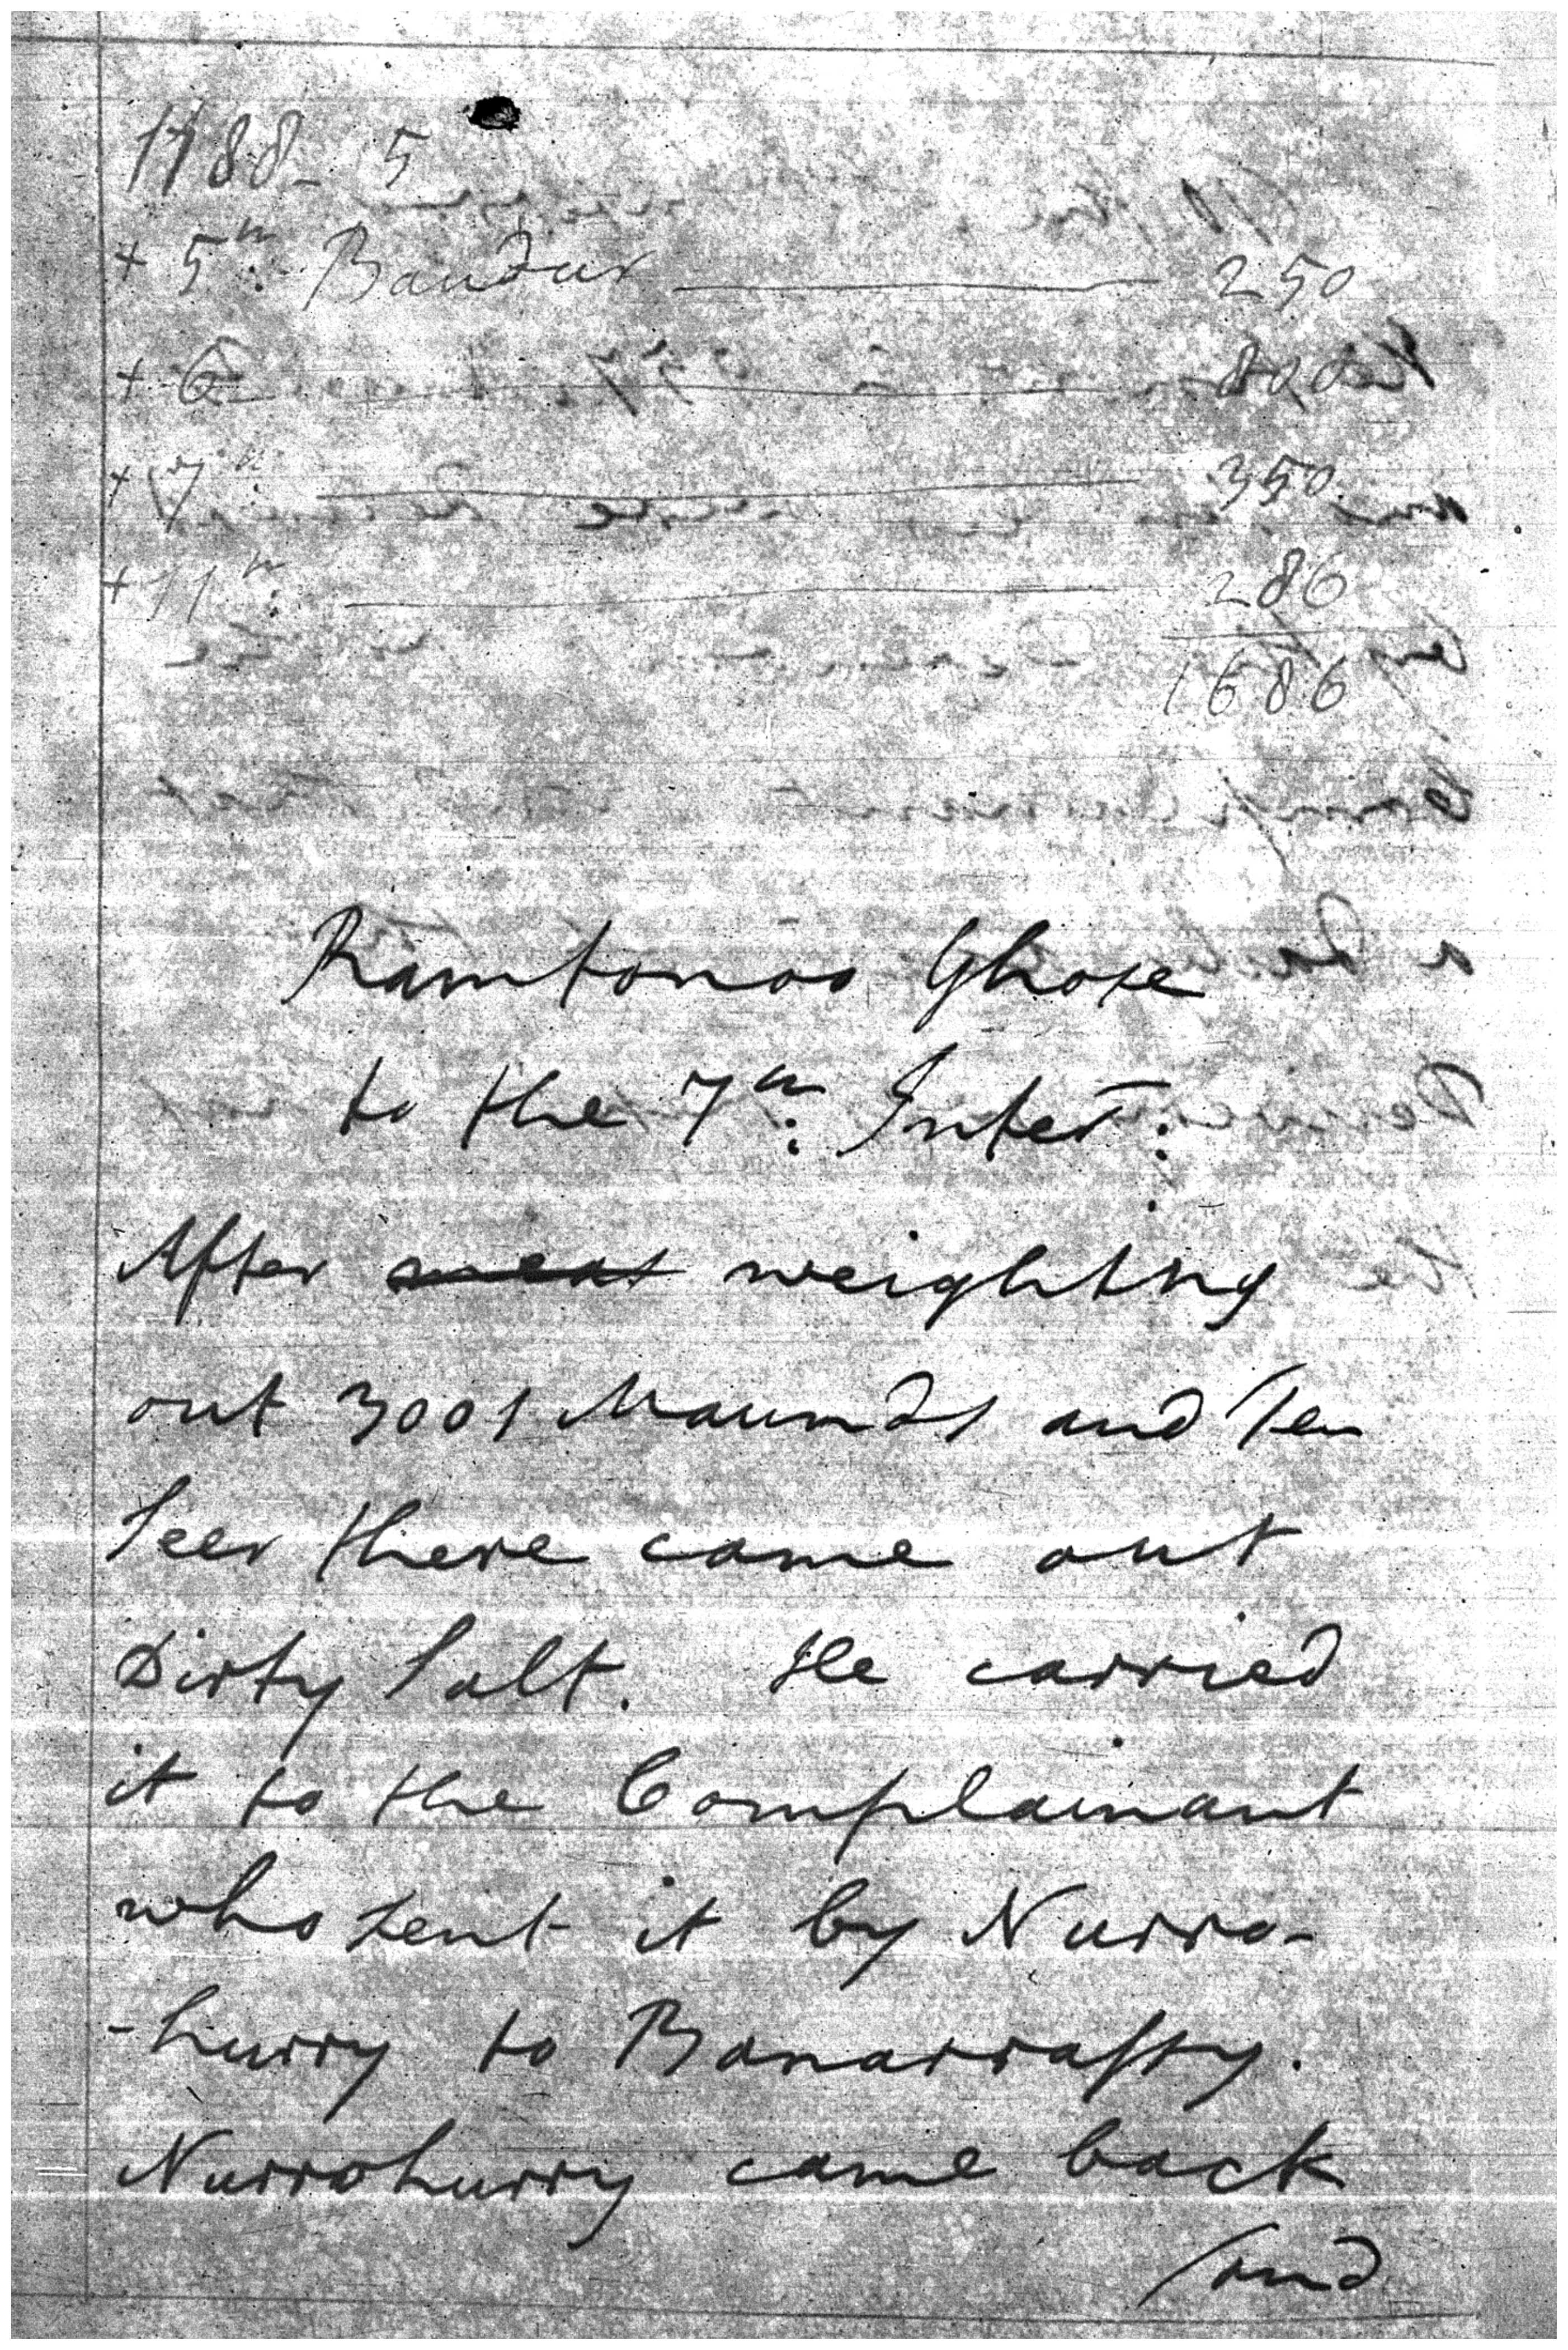 1188- 5
+ 5th: Baudar 250
+ 6 800
+ 7th: 350
+ 11th: 286
1686
Ramtonoo Ghose
to the 7th: Inter:
After weighting
out 3001 Maunds and Ten
Seer there came out
Dirty Salt. He carried
it to the Complainant
who sent it by Nurro-
-hurry to Banarrassy.
Nurrohurry came back
and